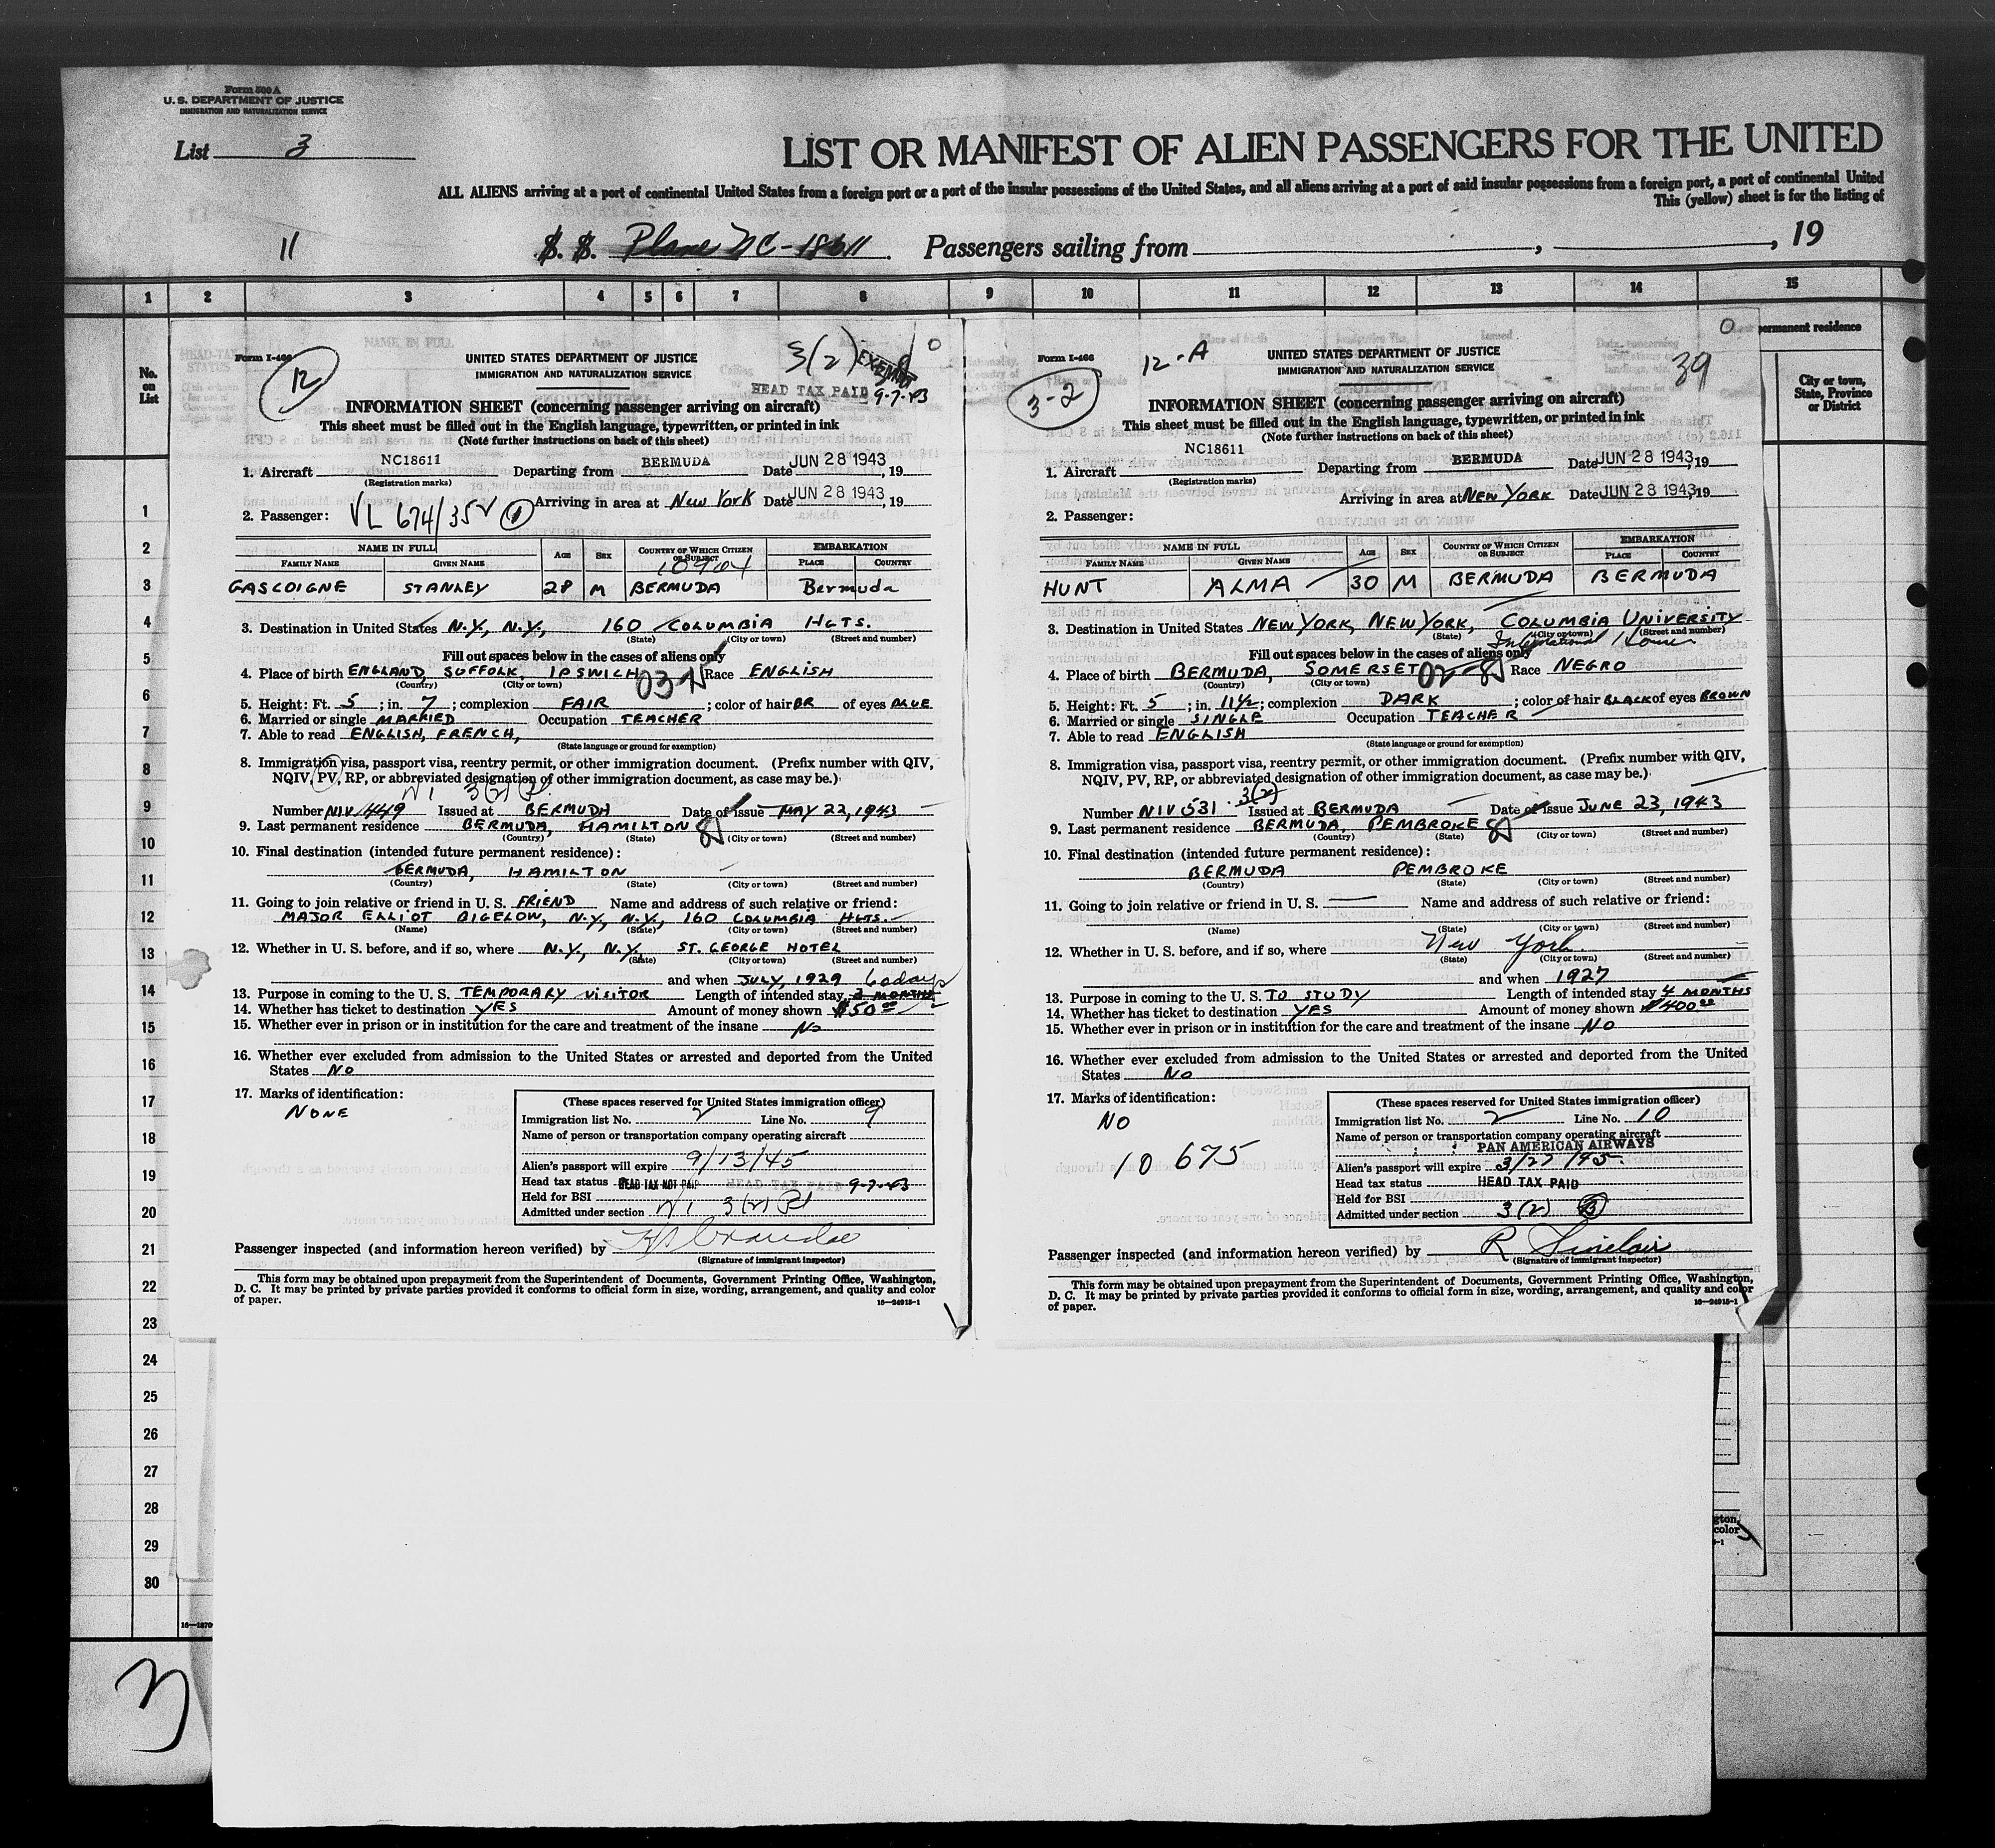 Form 500 A
U. S. DEPARTMENT OF JUSTICE
IMMIGRATION AND NATURALIZATION SERVICE
List 3
LIST OR MANIFEST OF ALIEN PASSENGERS FOR THE UNITED
ALL ALIENS arriving at a port of continental United States from a foreign port or a port of the insular possessions of the United States, and all aliens arriving at a port of said insular possessions from a foreign port, a port of continental United
This (yellow) sheet is for the listing of
11 S. S. Plane NC-18611. Passengers sailing from , , 19
1 2 3 4 5 6 7 8 9 10 11 12 13 14 15
No. on List
permanent residence
City or town, State, Province or District
1
2
3
4
5
6
7
8
9
10
11
12
13
14
15
16
17
18
19
20
21
22
23
24
25
26
27
28
29
30
3
Form I-466
12
UNITED STATES DEPARTMENT OF JUSTICE
IMMIGRATION AND NATURALIZATION SERVICE
3(2) EXEMPT 0
HEAD TAX PAID 9-7-43
INFORMATION SHEET (concerning passenger arriving on aircraft)
This sheet must be filled out in the English language, typewritten, or printed in ink
(Note further instructions on back of this sheet)
1. Aircraft NC18611 Departing from BERMUDA Date JUN 28 1943, 19
(Registration marks)
Arriving in area at New York Date JUN 28 1943, 19
2. Passenger: VL 674/35 1
NAME IN FULL AGE SEX COUNTRY OF WHICH CITIZEN OR SUBJECT EMBARKATION
FAMILY NAME GIVEN NAME PLACE COUNTRY
GASCOIGNE STANLEY 28 M BERMUDA Bermuda
3. Destination in United States N.Y., N.Y., 160 COLUMBIA HGTS.
(State) (City or town) (Street and number)
Fill out spaces below in the cases of aliens only
4. Place of birth ENGLAND, SUFFOLK, IPSWICH Race ENGLISH
(Country) (City or town)
5. Height: Ft. 5; in. 7; complexion FAIR; color of hair BR of eyes BLUE
6. Married or single MARRIED Occupation TEACHER
7. Able to read ENGLISH, FRENCH,
(State language or ground for exemption)
8. Immigration visa, passport visa, reentry permit, or other immigration document. (Prefix number with QIV,
NQIV, PV, RP, or abbreviated designation of other immigration document, as case may be.)
Number NIV 1449 Issued at BERMUDA Date of issue MAY 22, 1943
9. Last permanent residence BERMUDA, HAMILTON
(Country) (State) (City or town) (Street and number)
10. Final destination (intended future permanent residence):
BERMUDA, HAMILTON
(Country) (State) (City or town) (Street and number)
11. Going to join relative or friend in U. S. FRIEND Name and address of such relative or friend:
MAJOR ELLIOT BIGELOW, N.Y., N.Y., 160 COLUMBIA HGTS.
(Name) (State) (City or town) (Street and number)
12. Whether in U. S. before, and if so, where N.Y., N.Y., ST. GEORGE HOTEL
(State) (City or town) (Street and number)
and when JULY, 1929
13. Purpose in coming to the U. S. TEMPORARY VISITOR Length of intended stay 2 MONTHS 60 days
14. Whether has ticket to destination YES Amount of money shown $50.00
15. Whether ever in prison or in institution for the care and treatment of the insane No
16. Whether ever excluded from admission to the United States or arrested and deported from the United
States No
17. Marks of identification:
NONE
(These spaces reserved for United States immigration officer)
Immigration list No. 2 Line No. 9
Name of person or transportation company operating aircraft
Alien's passport will expire 9/13/45
Head tax status HEAD TAX NOT PAID HEAD TAX PAID 9-7-43
Held for BSI
Admitted under section 3(2)
Passenger inspected (and information hereon verified) by
(Signature of immigrant inspector)
This form may be obtained upon prepayment from the Superintendent of Documents, Government Printing Office, Washington,
D. C. It may be printed by private parties provided it conforms to official form in size, wording, arrangement, and quality and color
of paper.
16—24915-1
Form I-466
3-2
12-A
UNITED STATES DEPARTMENT OF JUSTICE
IMMIGRATION AND NATURALIZATION SERVICE
0
39
INFORMATION SHEET (concerning passenger arriving on aircraft)
This sheet must be filled out in the English language, typewritten, or printed in ink
(Note further instructions on back of this sheet)
1. Aircraft NC18611 Departing from BERMUDA Date JUN 28 1943, 19
(Registration marks)
Arriving in area at NEW YORK Date JUN 28 1943, 19
2. Passenger:
NAME IN FULL AGE SEX COUNTRY OF WHICH CITIZEN OR SUBJECT EMBARKATION
FAMILY NAME GIVEN NAME PLACE COUNTRY
HUNT ALMA 30 M BERMUDA BERMUDA
3. Destination in United States NEW YORK, NEW YORK, COLUMBIA UNIVERSITY
(State) (City or town) (Street and number)
International House
Fill out spaces below in the cases of aliens only
4. Place of birth BERMUDA, SOMERSET Race NEGRO
(Country) (City or town)
5. Height: Ft. 5; in. 11½; complexion DARK; color of hair BLACK of eyes BROWN
6. Married or single SINGLE Occupation TEACHER
7. Able to read ENGLISH
(State language or ground for exemption)
8. Immigration visa, passport visa, reentry permit, or other immigration document. (Prefix number with QIV,
NQIV, PV, RP, or abbreviated designation of other immigration document, as case may be.)
Number NIV 531 3(2) Issued at BERMUDA Date of issue JUNE 23, 1943
9. Last permanent residence BERMUDA, PEMBROKE
(Country) (State) (City or town) (Street and number)
10. Final destination (intended future permanent residence):
BERMUDA PEMBROKE
(Country) (State) (City or town) (Street and number)
11. Going to join relative or friend in U. S. — Name and address of such relative or friend:
(Name) (State) (City or town) (Street and number)
12. Whether in U. S. before, and if so, where New York
(State) (City or town) (Street and number)
and when 1927
13. Purpose in coming to the U. S. TO STUDY Length of intended stay 4 MONTHS
14. Whether has ticket to destination YES Amount of money shown $400.00
15. Whether ever in prison or in institution for the care and treatment of the insane NO
16. Whether ever excluded from admission to the United States or arrested and deported from the United
States NO
17. Marks of identification:
NO
10 675
(These spaces reserved for United States immigration officer)
Immigration list No. 2 Line No. 10
Name of person or transportation company operating aircraft
PAN AMERICAN AIRWAYS
Alien's passport will expire 3/27/45
Head tax status HEAD TAX PAID
Held for BSI
Admitted under section 3(2)
Passenger inspected (and information hereon verified) by R Sinclair
(Signature of immigrant inspector)
This form may be obtained upon prepayment from the Superintendent of Documents, Government Printing Office, Washington,
D. C. It may be printed by private parties provided it conforms to official form in size, wording, arrangement, and quality and color
of paper.
16—24915-1